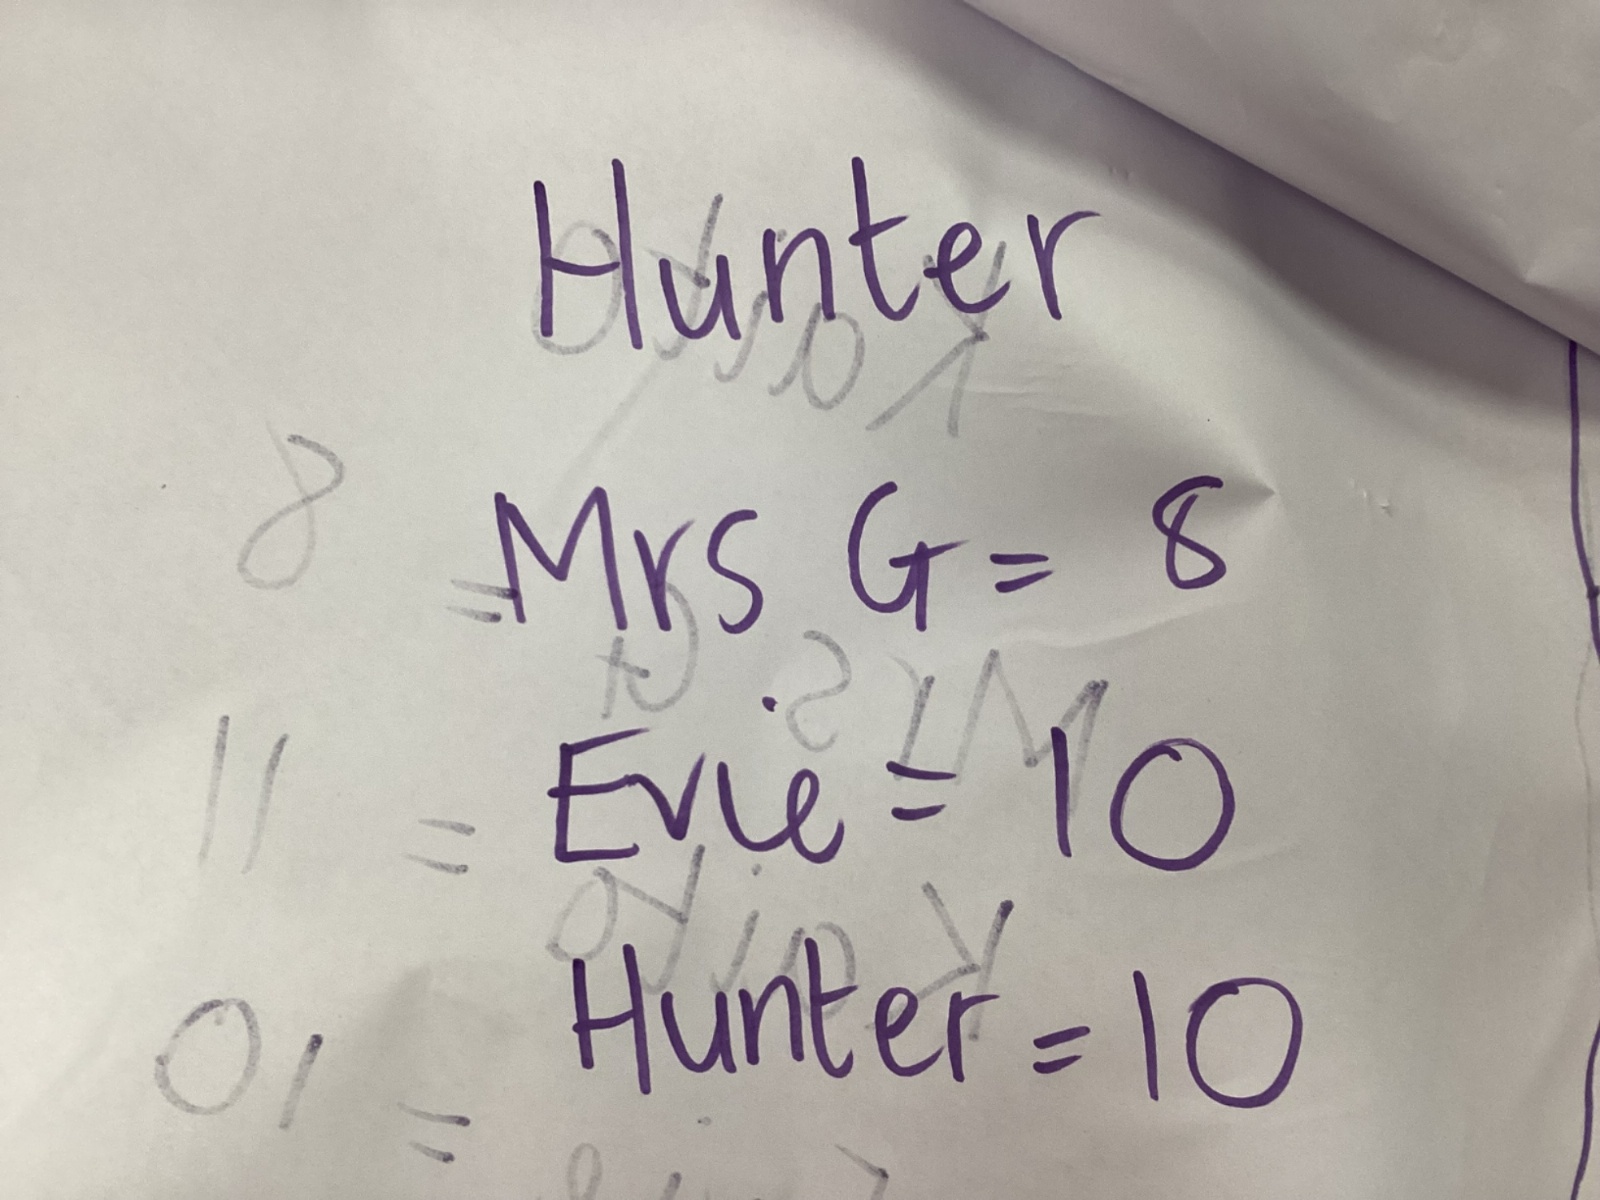 Hunter
Mrs G = 8
Evie = 10
Hunter = 10